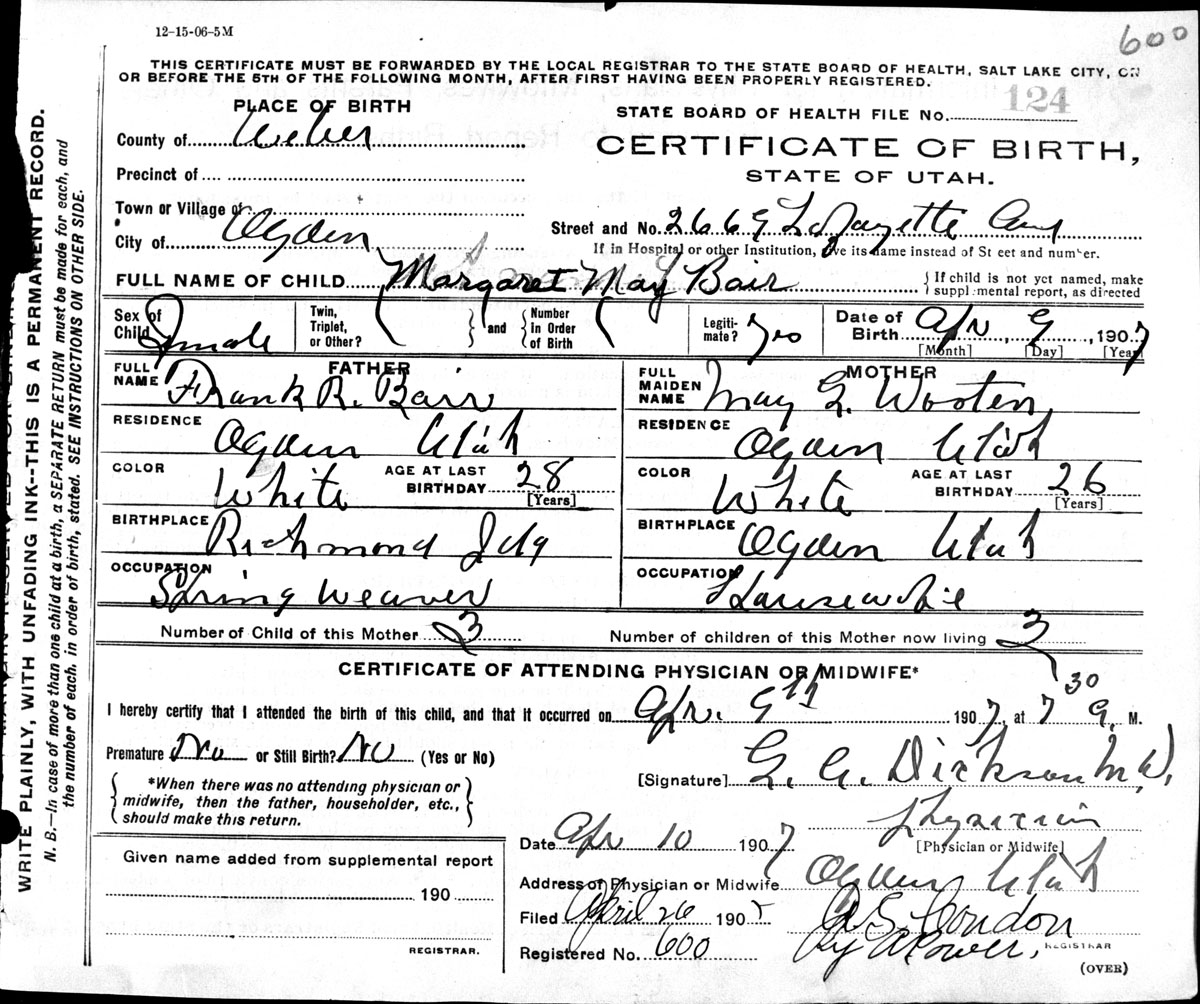 12-15-06-5M
600
THIS CERTIFICATE MUST BE FORWARDED BY THE LOCAL REGISTRAR TO THE STATE BOARD OF HEALTH, SALT LAKE CITY, ON
OR BEFORE THE 5TH OF THE FOLLOWING MONTH, AFTER FIRST HAVING BEEN PROPERLY REGISTERED.
PLACE OF BIRTH
STATE BOARD OF HEALTH FILE No. 124
County of Weber
CERTIFICATE OF BIRTH,
STATE OF UTAH.
Precinct of
Town or Village of
Street and No. 2669 Lafayette Ave
City of Ogden
If in Hospital or other Institution, give its name instead of St eet and number.
FULL NAME OF CHILD Margaret May Bair
{ If child is not yet named, make
supplmental report, as directed
Sex of Child Female
Twin, Triplet, or Other? } and { Number in Order of Birth
Legiti-mate? Yes
Date of Birth Apr 9, 1907
[Month] [Day] [Year]
FATHER
FULL NAME Frank R. Bair
RESIDENCE Ogden Utah
COLOR White
AGE AT LAST BIRTHDAY 28 [Years]
BIRTHPLACE Richmond
OCCUPATION Spring Weaver
MOTHER
FULL MAIDEN NAME May G. Wooten
RESIDENCE Ogden Utah
COLOR White
AGE AT LAST BIRTHDAY 26 [Years]
BIRTHPLACE Ogden Utah
OCCUPATION Housewife
Number of Child of this Mother 3
Number of children of this Mother now living 3
CERTIFICATE OF ATTENDING PHYSICIAN OR MIDWIFE*
I hereby certify that I attended the birth of this child, and that it occurred on Apr. 9th 1907, at 7 30 a. M.
Premature No or Still Birth? No (Yes or No)
[Signature] Dickson M.D.
{ *When there was no attending physician or
midwife, then the father, householder, etc.,
should make this return. }
Physician
[Physician or Midwife]
Date Apr 10 1907
Address of Physician or Midwife Ogden Utah
Given name added from supplemental report
190
REGISTRAR.
Filed April 26 190
Registered No. 600
By
REGISTRAR
(OVER)
WRITE PLAINLY, WITH UNFADING INK--THIS IS A PERMANENT RECORD.
N. B.—In case of more than one child at a birth, a SEPARATE RETURN must be made for each, and
the number of each, in order of birth, stated. SEE INSTRUCTIONS ON OTHER SIDE.